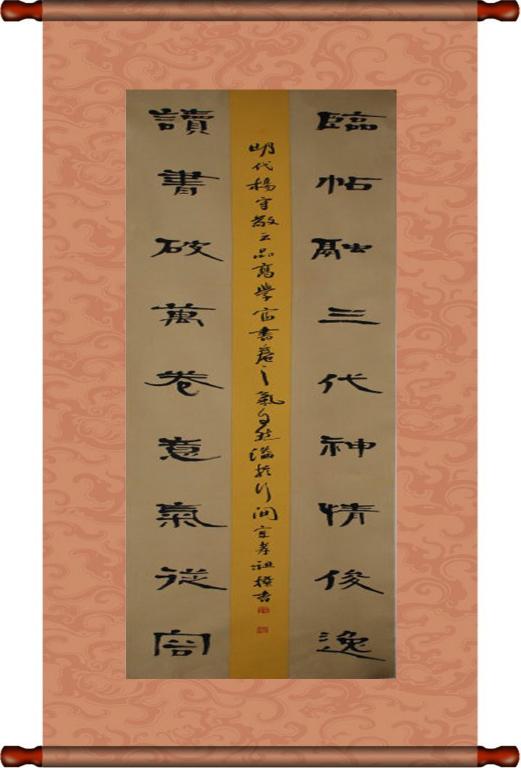 臨帖融三代神情俊逸
明代楊守敬云品高學富書卷之氣自然溢於行間
讀書破萬卷意氣從容